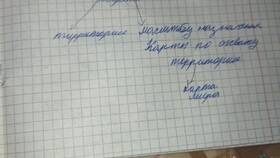 территории масштабу назначения
Карты по охвату
территории
Карта
мира